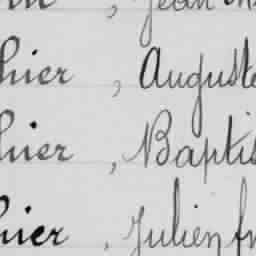 , Jean
hier , Auguste
hier , Baptis
hier , Julien fr